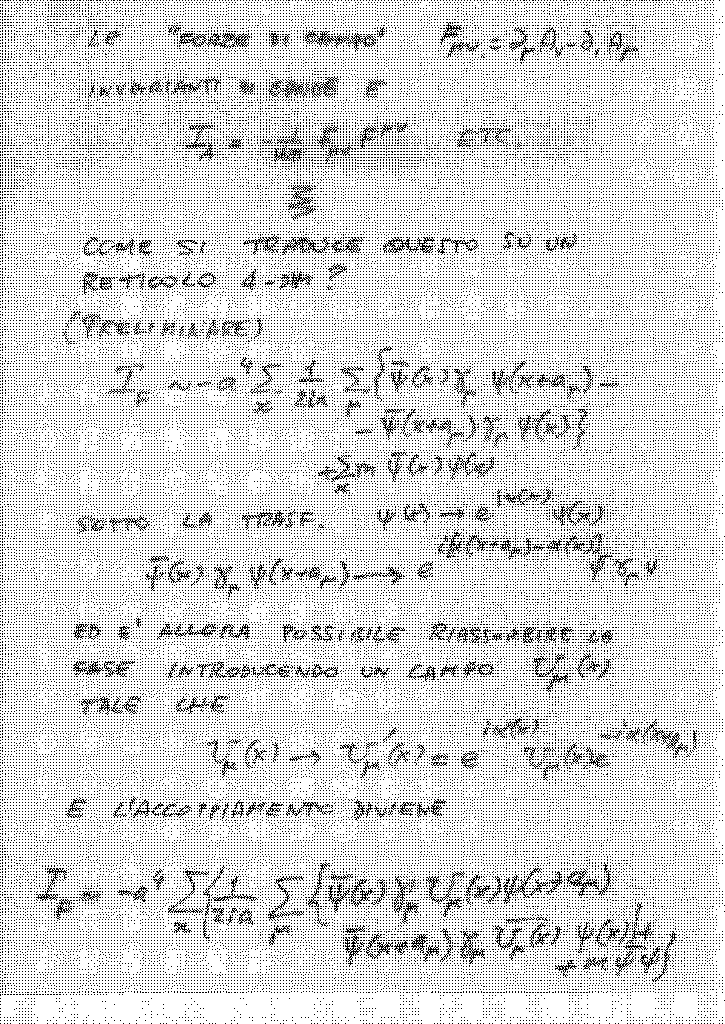 LE "FORZE DI CAMPO" F_μν = ∂_μ A_ν - ∂_ν A_μ
INVARIANTI DI GAUGE E
I_A = -1/4 F_μν F^μν ETC.
COME SI TRADUCE QUESTO SU UN
RETICOLO 4-DIM?
(PRELIMINARE)
I_F ~ -a^4 Σ_x 1/2ia Σ_μ {ψ̄(x) γ_μ ψ(x+a_μ) -
- ψ̄(x+a_μ) γ_μ ψ(x)}
+ Σ_x m ψ̄(x) ψ(x)
SOTTO LA TRASF. ψ(x) → e^{iα(x)} ψ(x)
ψ̄(x) γ_μ ψ(x+a_μ) → e^{i[α(x+a_μ)-α(x)]} ψ̄ γ_μ ψ
ED E' ALLORA POSSIBILE RIASSORBIRE LA
FASE INTRODUCENDO UN CAMPO U_μ(x)
TALE CHE
U_μ(x) → U_μ'(x) = e^{iα(x)} U_μ(x) e^{-iα(x+a_μ)}
E L'ACCOPPIAMENTO DIVIENE
I_F ~ -a^4 Σ_x {1/2ia Σ_μ [ψ̄(x) γ_μ U_μ(x) ψ(x+a_μ)
ψ̄(x+a_μ) γ_μ U_μ(x) ψ(x)] + m ψ̄ ψ}